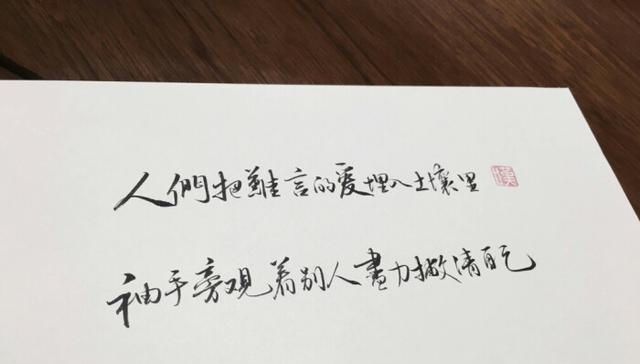 人們把難言的爱埋入土壤里
袖手旁观着别人盡力撇清自己